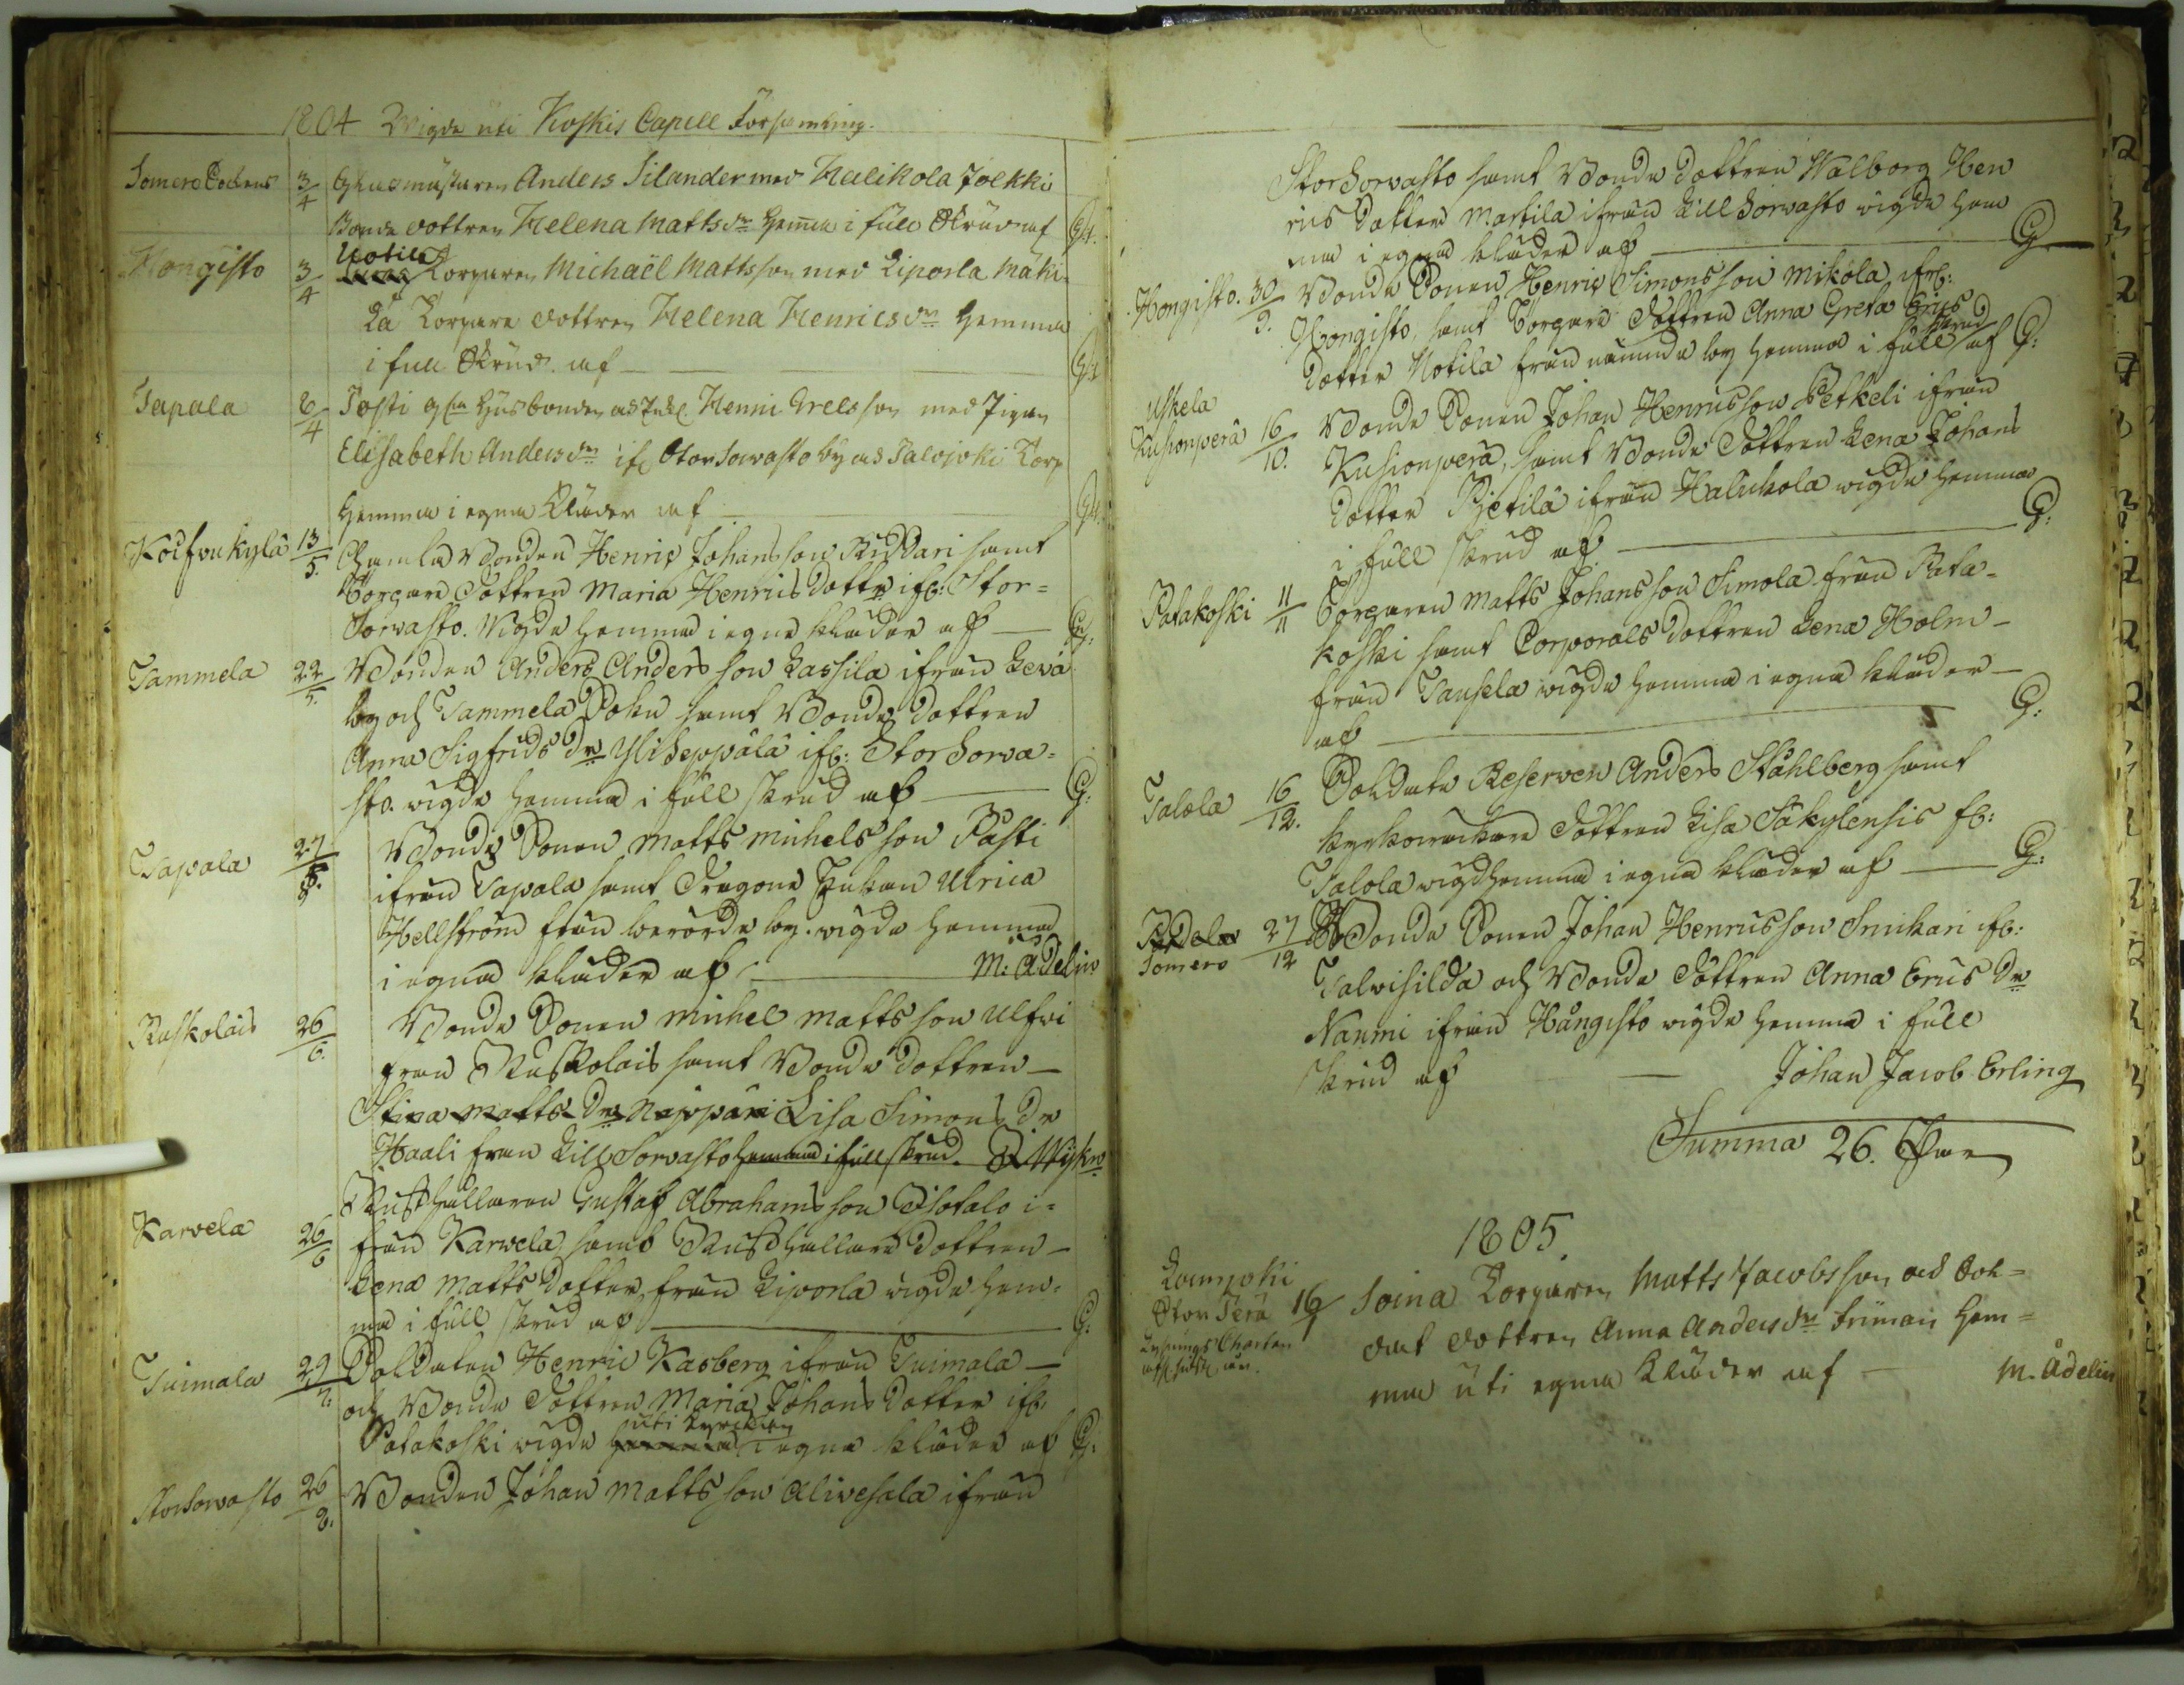 1804 Wigde uti Koskis Capell Församling.
Somero Sockens 3/4 Glasmästaren Anders Silander med Halikola Jockki
Bonde dottren Helena Matts dr hemma i full skrud af
Hongisto 3/4 Uotila Torparen Michaël Mattsson med Liporla Mäki-
Lä Torpare dottren Helena Henrics dr hemma
i full skrud af
Tapala 6/4 Posti gla Husbonden Henric Grelsson med Pigan
Elisabeth Anders dr if. Stor Sorvasto by Salojoki Torp
hemma i egna kläder af
Koifvukylä 13/5. Gamla Bonden Henric Johansson Riddari samt
Torpare Dottren Maria Henrics Dotter ifr: Stor=
Sorvasto. Wigde hemma i egna kläder af G:
Tammela 22/5. Bonden Anders Andersson Kassila ifrån Levä
by och Tammela Sokn samt Bonde dottren
Anna Sigfrids Dr Yliseppälä ifr: Stor Sorva=
sto. wigde hemma i full skrud af G:
Tapala 27/5. Bonde Sonen Matts Michelsson Pasti
ifrån Tapala samt Dragone Enkan Ulrica
Hellström från berörde by. wigde hemma
i egna kläder af M: Adelin
Ruskolais 26/6. Bonde Sonen Michel Mattsson Ulfvi
från Ruskolais samt Bonde dottren
Stina Matts Dr Näppäri Lisa Simons Dr
Haali från Lill Sorvasto hemma i full skrud.
Karvela 26/6 Rusthållaren Gustaf Abrahamsson Isotalo i=
från Karvela samt Rusthållare dottren
Lena Matts dotter från Liporla wigde hem-
ma i full skrud af G:
Tuimala 29/7. Soldaten Henric Kasberg ifrån Tuimala
och Bonde Dottren Maria Johans Dotter ifr.
Patakoski wigde hemma uti Kyrckan i egna kläder af G:
Storsorvasto 26/8. Bonden Johan Mattsson Alivesala ifrån
Stor Sorvasto samt Bonde Dottren Walborg Hen
rics Dotter Martila ifrån Lill Sorvasto wigde hem
ma i egna kläder af G.
Hongisto. 30/9. Bonde Sonen Henric Simonsson Mikola ifr:
Hongisto, samt Torpare Dottren Anna Greta Erics
Dotter Notila från nämnde by hemma i full skrud af G:
Uskela
Kusionperä 16/10. Bonde Sonen Johan Henricsson Petkeli ifrån
Kusionperä, samt Bonde Dottren Lena Johans
dotter Pietilä ifrån Halikola wigde hemma
i full skrud af G:
Patakoski 11/11 Torparen Matts Johansson Simola från Pata=
koski samt Corporals dottren Lena Holm
från Tausela wigde hemma i egna kläder
af G:
Talola 16/12. Soldate Reserven Anders Ståhlberg samt
kyrkoväktare Dottren Lisa Säkylensis fr:
Talola wigd hemma i egna kläder af G:
Somero 27/12 Bonde Sonen Johan Henricsson Snikari ifr:
Talvisilda och Bonde Dottren Anna Erics Dr
Nanmi ifrån Hångisto wigde hemma i full
skrud af Johan Jacob Erling
Summa 26. Par
1805.
Loimjoki
Stor Perä 16/1 Soina Torparen Matts Jacobsson och Sol=
dat dottren Anna Anders dr Friman hem=
Lysnings Charten
ma uti egna kläder af M. Ådelin